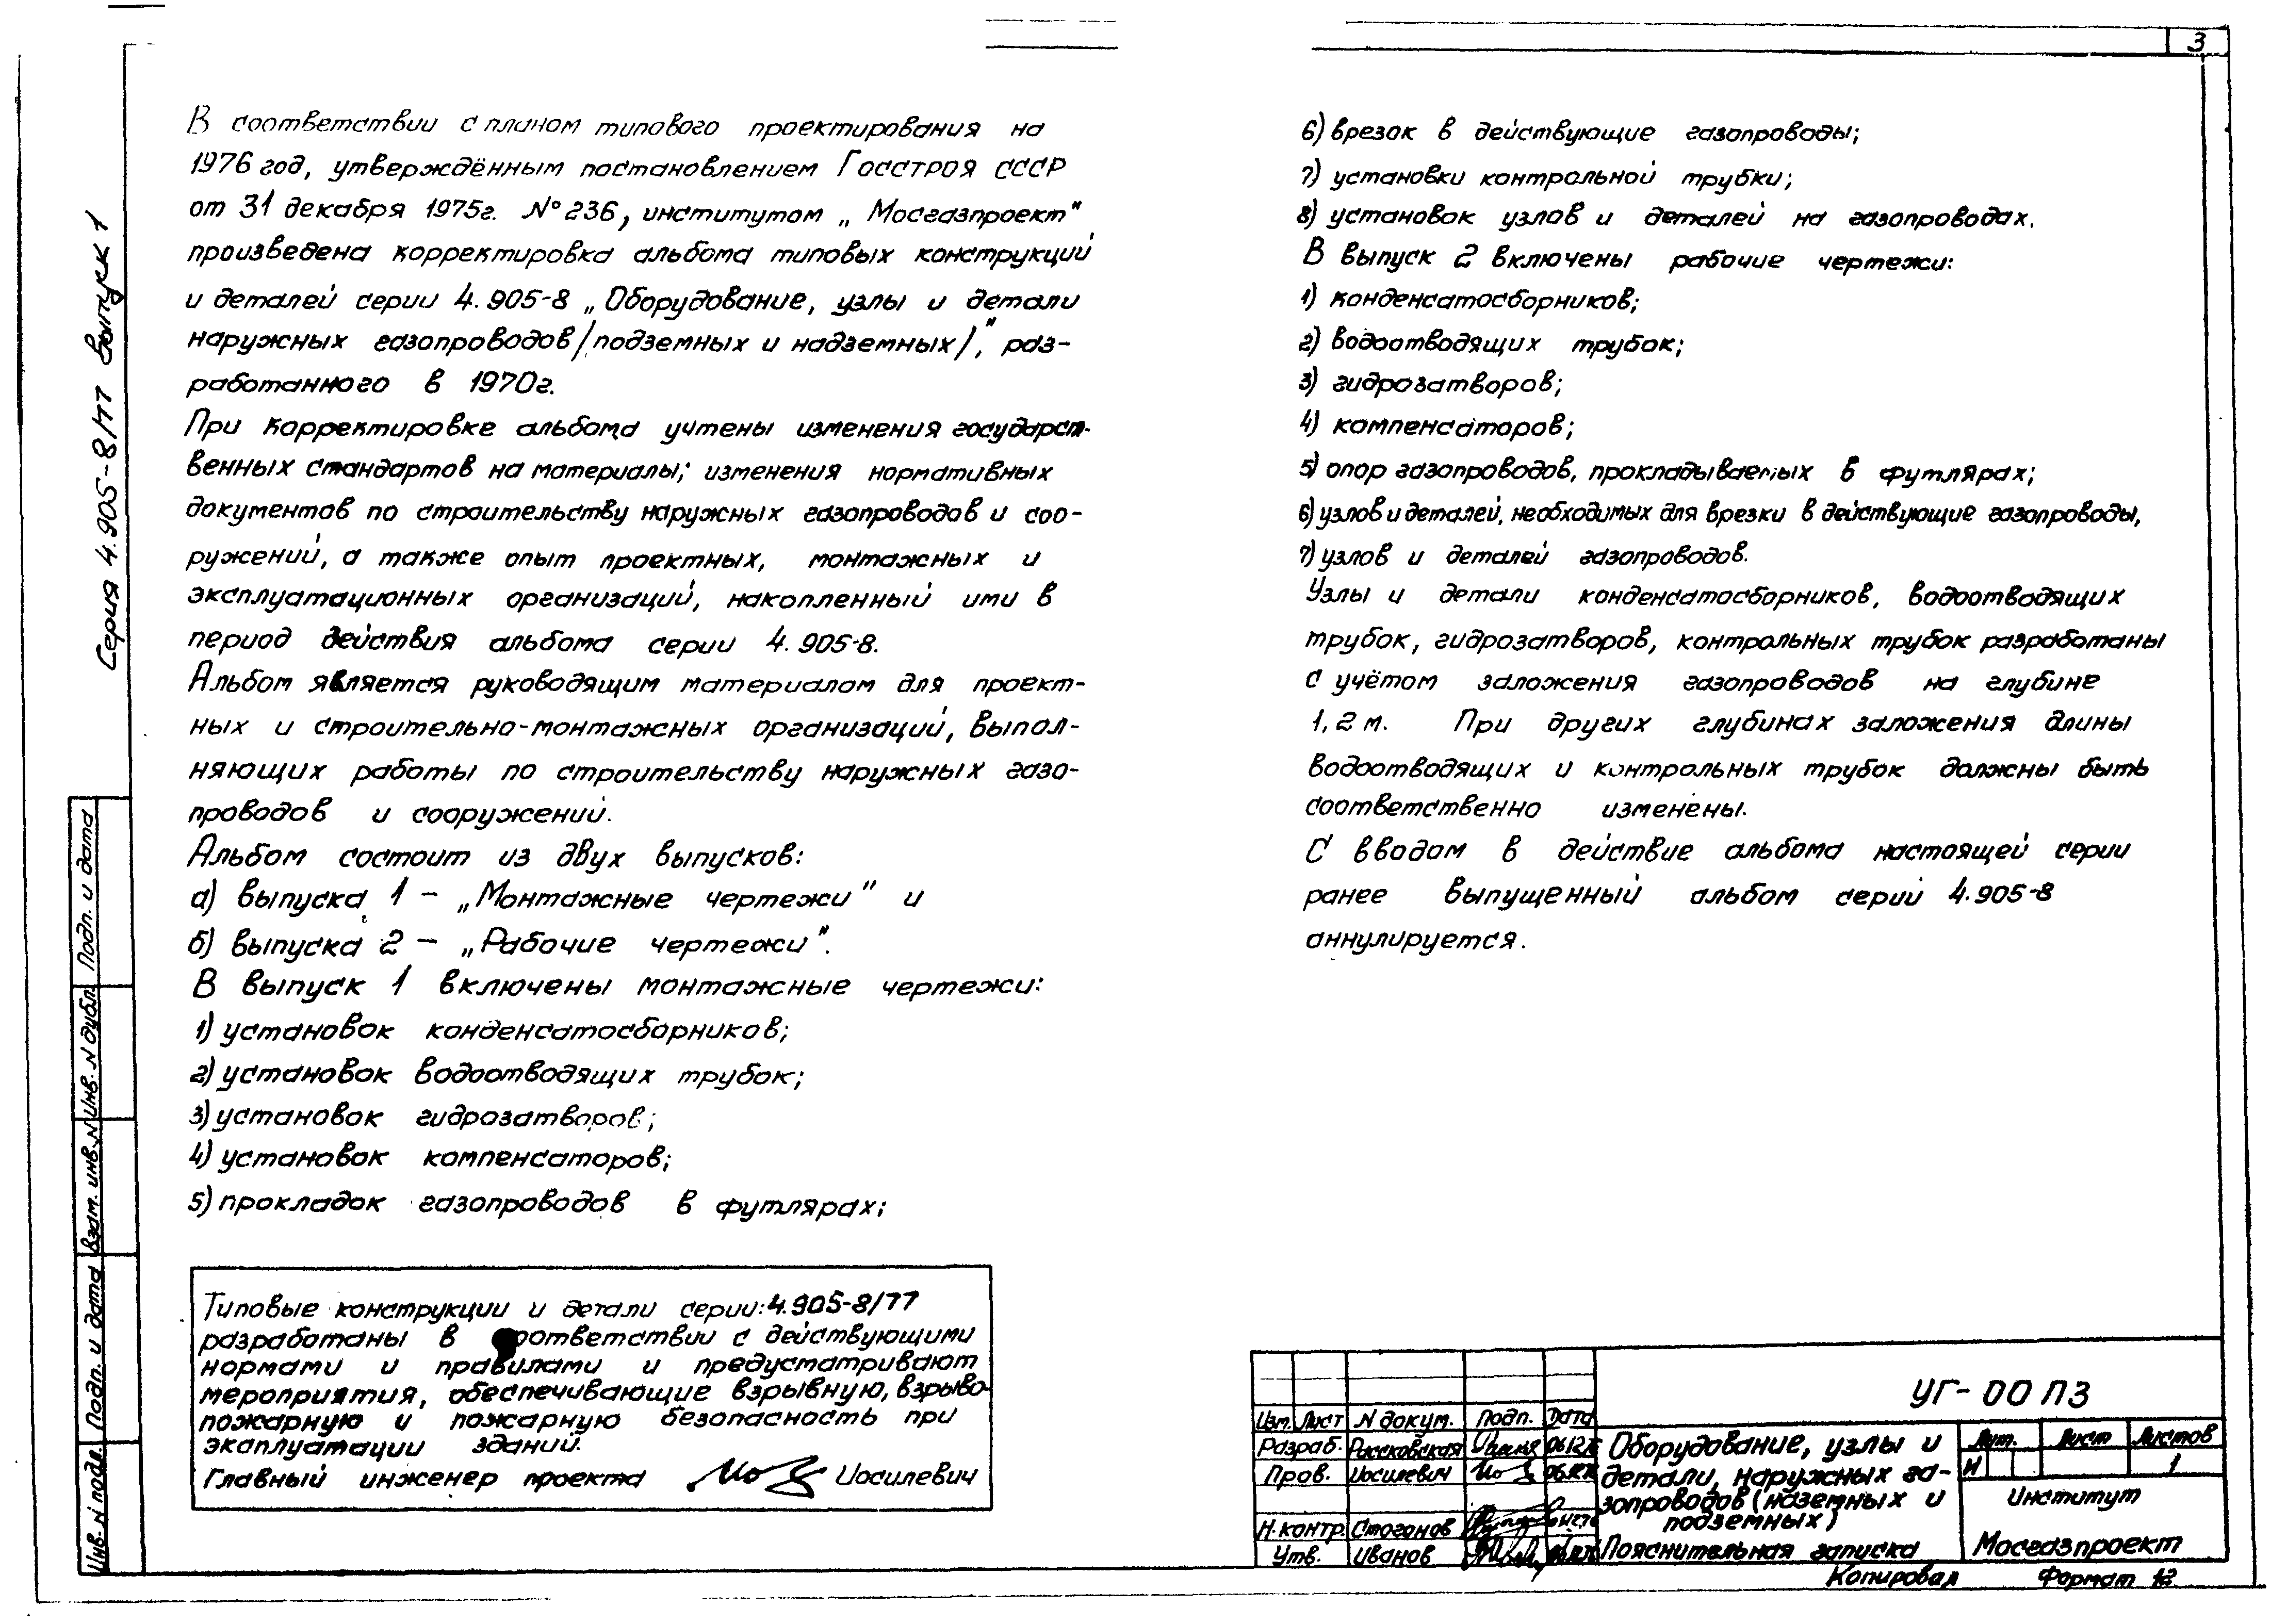 3
В соответствии с планом типового проектирования на
1976 год, утверждённым постановлением Госстроя СССР
от 31 декабря 1975г. №236, институтом „Мосгазпроект"
произведена корректировка альбома типовых конструкций
и деталей серии 4.905-8 „Оборудование, узлы и детали
наружных газопроводов /подземных и надземных/", раз-
работанного в 1970г.
При корректировке альбома учтены изменения государст-
венных стандартов на материалы; изменения нормативных
документов по строительству наружных газопроводов и соо-
ружений, а также опыт проектных, монтажных и
эксплуатационных организаций, накопленный ими в
период действия альбома серии 4.905-8.
Альбом является руководящим материалом для проект-
ных и строительно-монтажных организаций, выпол-
няющих работы по строительству наружных газо-
проводов и сооружений.
Альбом состоит из двух выпусков:
а) выпуска 1 – „Монтажные чертежи" и
б) выпуска 2 – „Рабочие чертежи".
В выпуск 1 включены монтажные чертежи:
1) установок конденсатосборников;
2) установок водоотводящих трубок;
3) установок гидрозатворов;
4) установок компенсаторов;
5) прокладок газопроводов в футлярах;
6) врезок в действующие газопроводы;
7) установки контрольной трубки;
8) установок узлов и деталей на газопроводах.
В выпуск 2 включены рабочие чертежи:
1) конденсатосборников;
2) водоотводящих трубок;
3) гидрозатворов;
4) компенсаторов;
5) опор газопроводов, прокладываемых в футлярах;
6) узлов и деталей, необходимых для врезки в действующие газопроводы,
7) узлов и деталей газопроводов.
Узлы и детали конденсатосборников, водоотводящих
трубок, гидрозатворов, контрольных трубок разработаны
с учётом заложения газопроводов на глубине
1,2 м. При других глубинах заложения длины
водоотводящих и контрольных трубок должны быть
соответственно изменены.
С вводом в действие альбома настоящей серии
ранее выпущенный альбом серий 4.905-8
аннулируется.
Типовые конструкции и детали серии: 4.905-8/77
разработаны в соответствии с действующими
нормами и правилами и предусматривают
мероприятия, обеспечивающие взрывную, взрыво-
пожарную и пожарную безопасность при
эксплуатации зданий.
Главный инженер проекта Иосилевич
Серия 4.905-8/77 Выпуск 1
Подп. и дата
Инв. N дубл.
Взам. инв. N
Подп. и дата
Инв. N подл.
УГ-00 ПЗ
Изм. Лист N докум. Подп. Дата
Разраб. Рассковская
Пров. Иосилевич
Н.контр. Стоганов
Утв. Иванов
Оборудование, узлы и
детали, наружных га-
зопроводов (наземных и
подземных)
Пояснительная записка
Лит. Лист Листов
И 1
Институт
Мосгазпроект
Копировал Формат 12